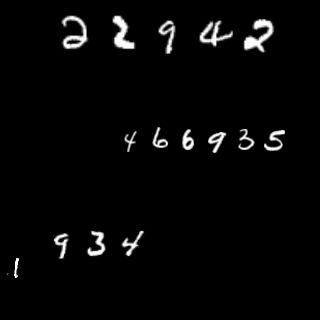 22942
466935
934
1